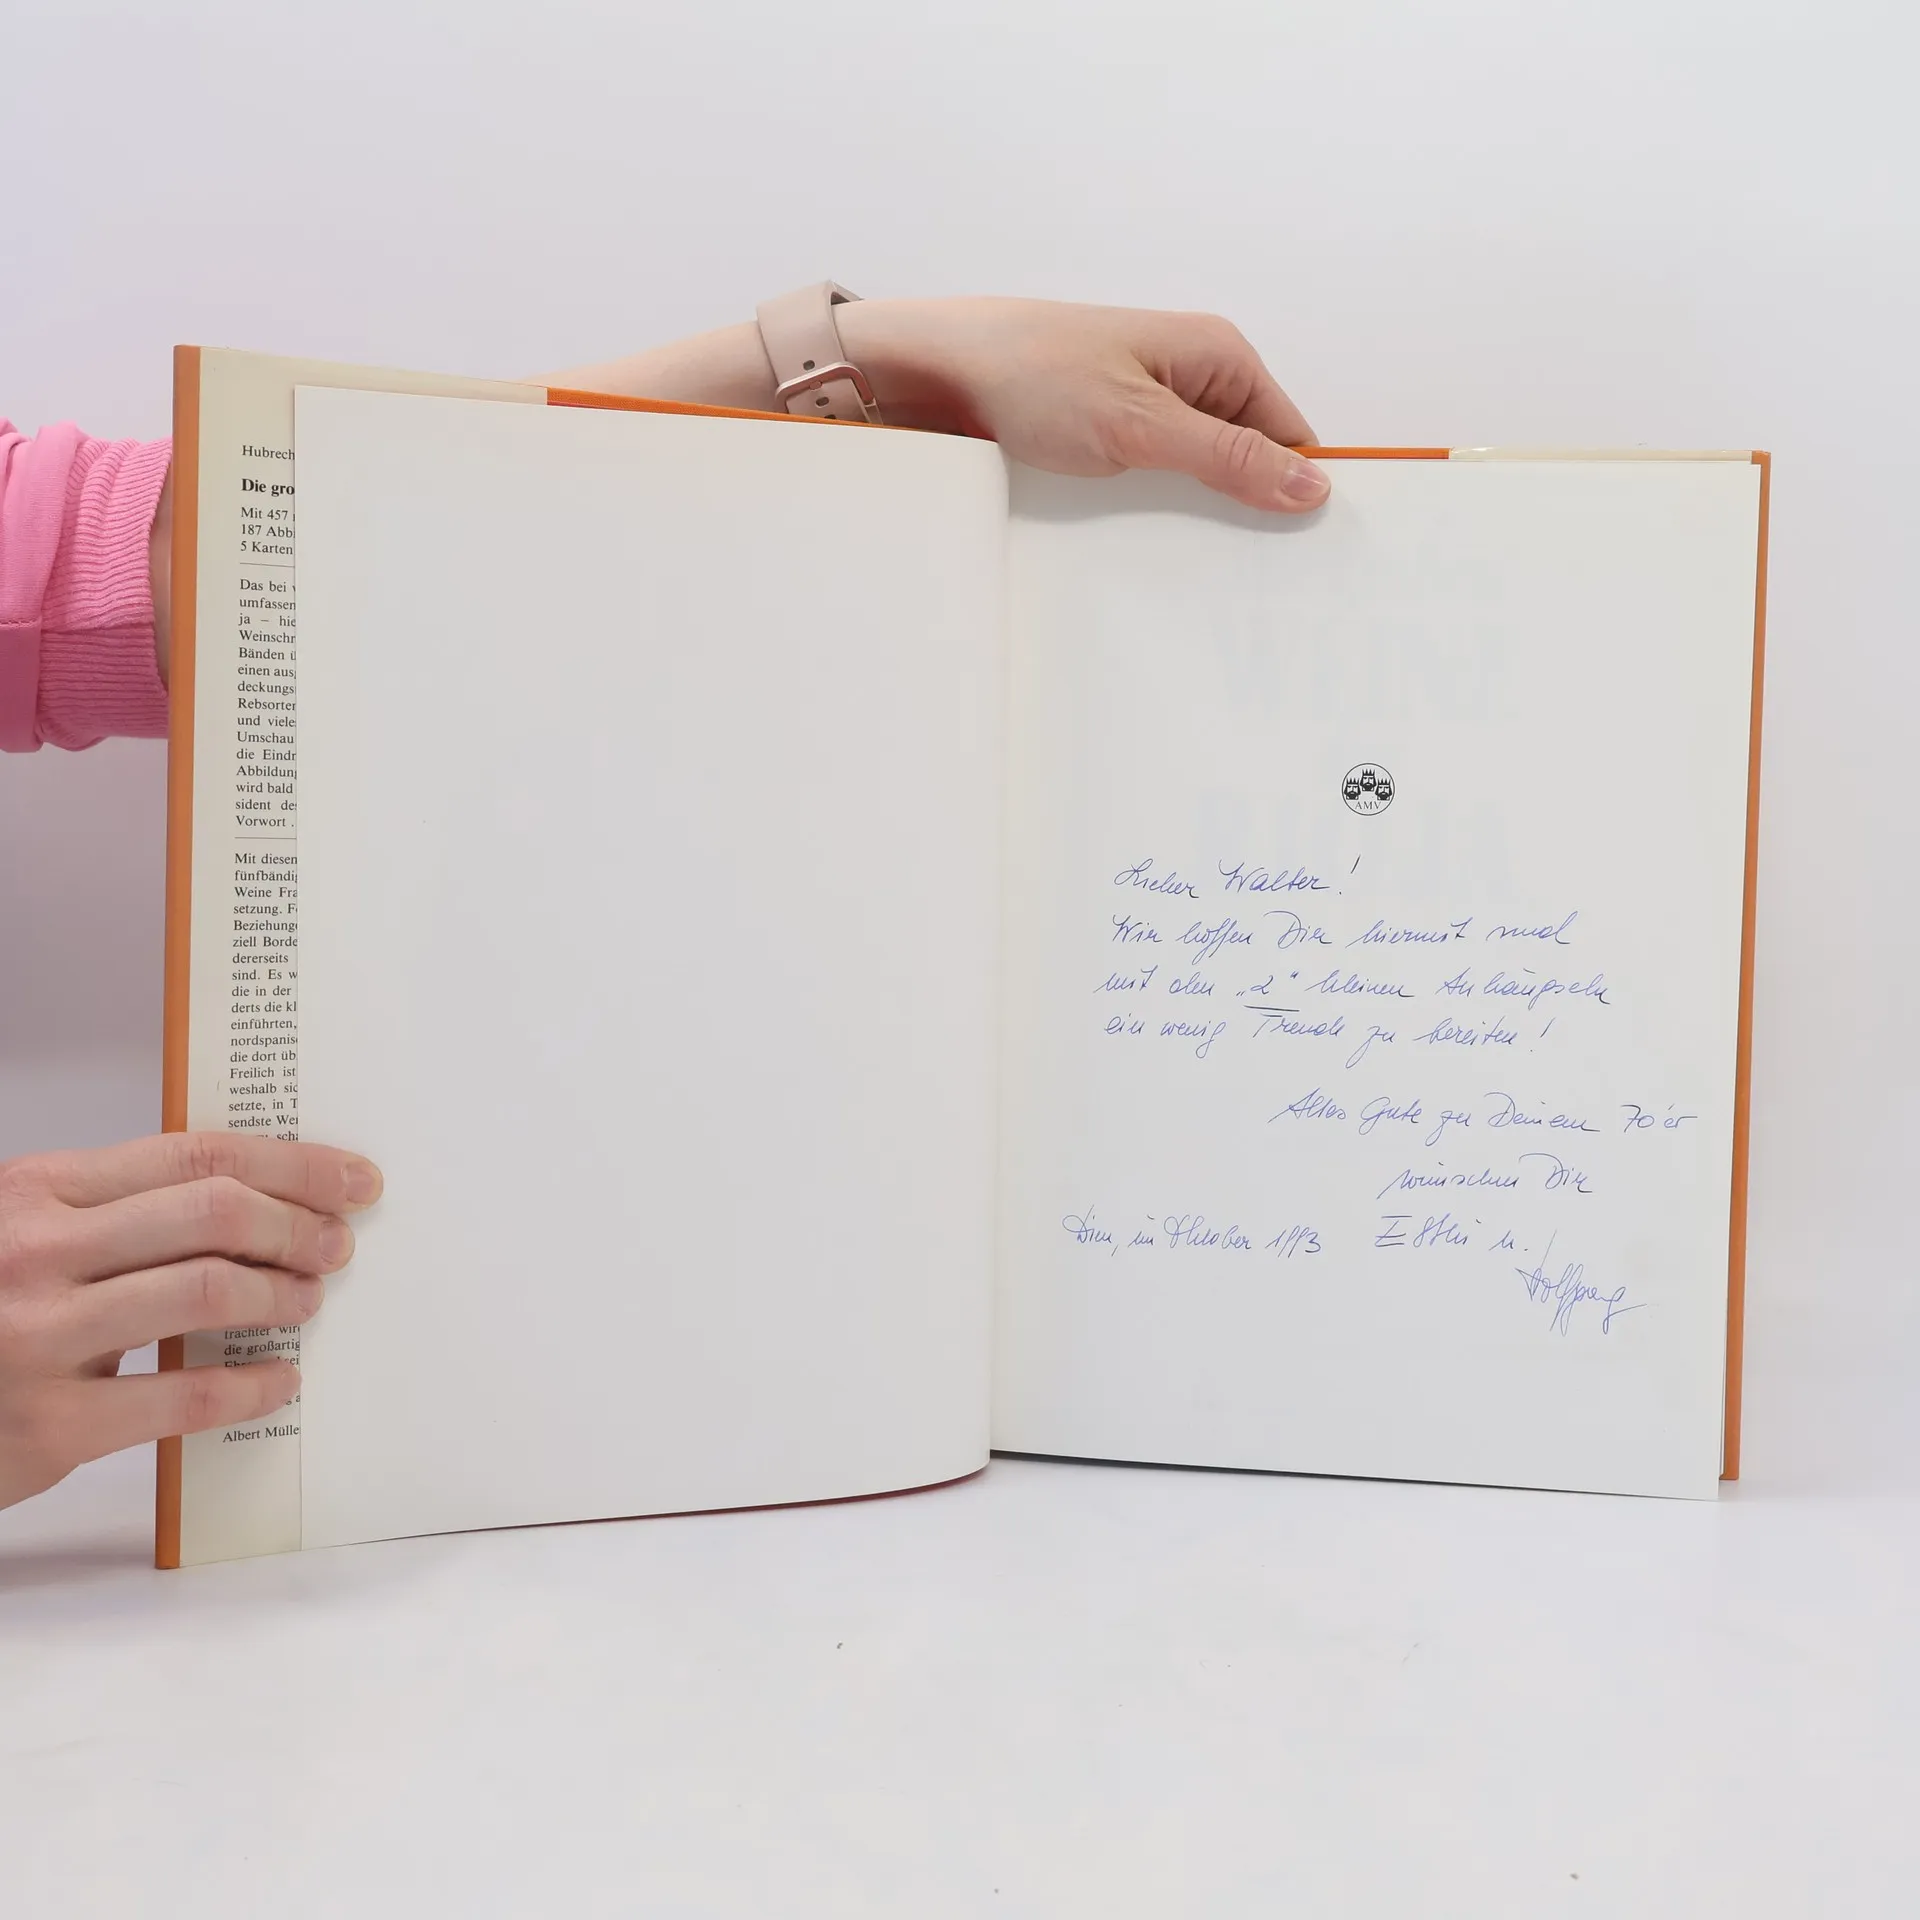 Hubrech
Die gro
Mit 457
187 Abbi
5 Karten
Das bei v
umfassen
ja – hie
Weinschr
Bänden ü
einen aus
deckungs
Rebsorten
und viele
Umschau
die Eindr
Abbildung
wird bald
sident des
Vorwort .
Mit diesen
fünfbändig
Weine Fra
setzung. F
Beziehunge
ziell Borde
dererseits
sind. Es w
die in der
derts die kl
einführten,
nordspanis
die dort üb
Freilich ist
weshalb sic
setzte, in T
sendste Wei
scha
trachter wir
die großartig
Albert Mülle
AMV
Lieber Walter!
Wir hoffen Dir hiermit und
mit den „2" kleinen Anhängseln
ein wenig Freude zu bereiten!
Alles Gute zu Deinem 70'er
wünschen Dir
im Oktober 1993 u.
Wolfgang